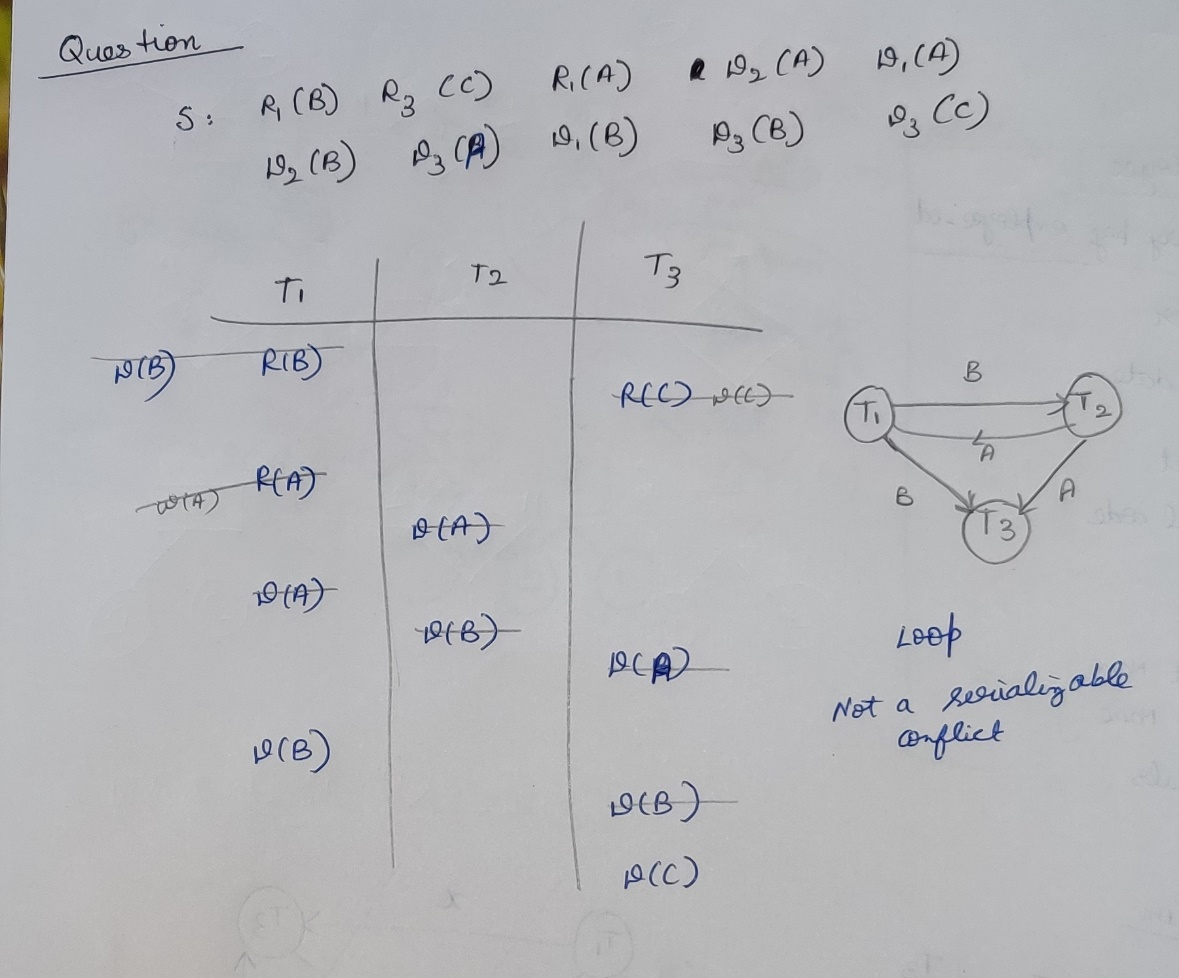 Question
S: R₁(B) R₃(C) R₁(A) W₂(A) W₁(A)
W₂(B) W₃(A) W₁(B) W₃(B) W₃(C)
T₁ T₂ T₃
W(B) R(B)
R(C) W(C)
W(A) R(A)
W(A)
W(A)
W(B)
W(A)
W(B)
W(B)
W(C)
B
T₁ T₂
A
B A
T₃
Loop
Not a serializable
conflict